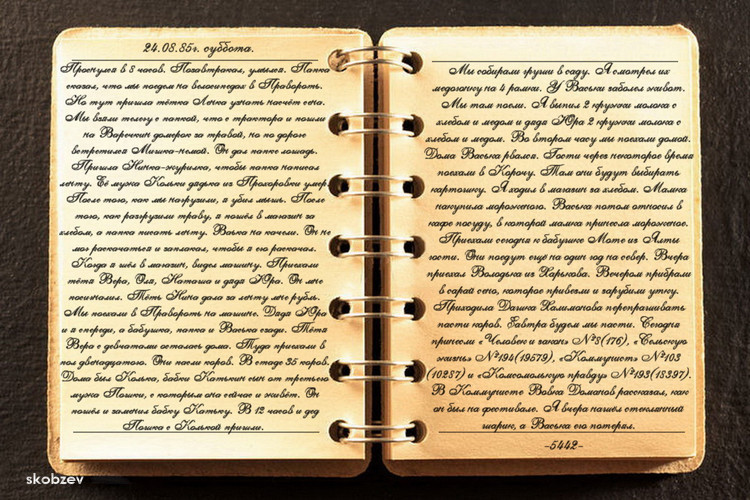 24.08.85г. суббота.
Проснулся в 8 часов. Позавтракал, умылся. Папка
сказал, что мы поедем на велосипедах в Правороть.
Но тут пришла тётка Ленка узнать насчёт сена.
Мы взяли телегу с папкой, что с трактора и пошли
на Варочкин домерок за травой, но по дороге
встретился Мишка-немой. Он дал папке лошадь.
Пришла Нинка-журилка, чтобы папка написал
ленту. Её мужа Кольки дядька из Прохоровки умер.
После того, как мы нагрузили, я убил мышь. После
того, как разгрузили траву, я пошёл в магазин за
хлебом, а папка писать ленту. Васька на качели. Он не
мог раскачаться и заплакал, чтобы я его раскачал.
Когда я шёл в магазин, видел машину. Приехали
тётя Вера, Оля, Наташа и дядя Юра. Он мне
посигналил. Тёть Нина дала за ленту мне рубль.
Мы поехали в Правороть на машине. Дядя Юра
и я спереди, а бабушка, папка и Васька сзади. Тётя
Вера с девчатами осталась дома. Туда приехали в
пол двенадцатого. Они пасли коров. В стаде 35 коров.
Дома был Колька, бабки Катькин сын от третьего
мужа Пошки, с которым она сейчас и живёт. Он
пошёл и заменил бабку Катьку. В 12 часов и дед
Пошка с Колькой пришли.
Мы собирали груши в саду. Я смотрел их
медогонку на 4 рамки. У Васьки заболел живот.
Мы там поели. Я выпил 2 кружки молока с
хлебом и медом и дядя Юра 2 кружки молока с
хлебом и медом. Во втором часу мы поехали домой.
Дома Васька рвался. Гости через некоторое время
поехали в Корочу. Там они будут выбирать
картошку. Я ходил в магазин за хлебом. Мамка
накупила мороженого. Васька потом относил в
кафе посуду, в которой мамка принесла мороженое.
Приехали сегодня к бабушке Моте из Ялты
гости. Они поедут ещё на один год на север. Вчера
приехал Володька из Харькова. Вечером прибрали
в сарай сено, которое привезли и зарубили утку.
Приходила Дашка Халимонова перепрашивать
пасти коров. Завтра будем мы пасти. Сегодня
принесли «Человек и закон» №8(176), «Сельскую
жизнь» №194(19579), «Коммунист» №103
(10287) и «Комсомольскую правду» №193(18397).
В Коммунисте Вовка Доманов рассказал, как
он был на фестивале. А вчера нашёл стеклянный
шарик, а Васька его потерял.
-5442-
skobzev